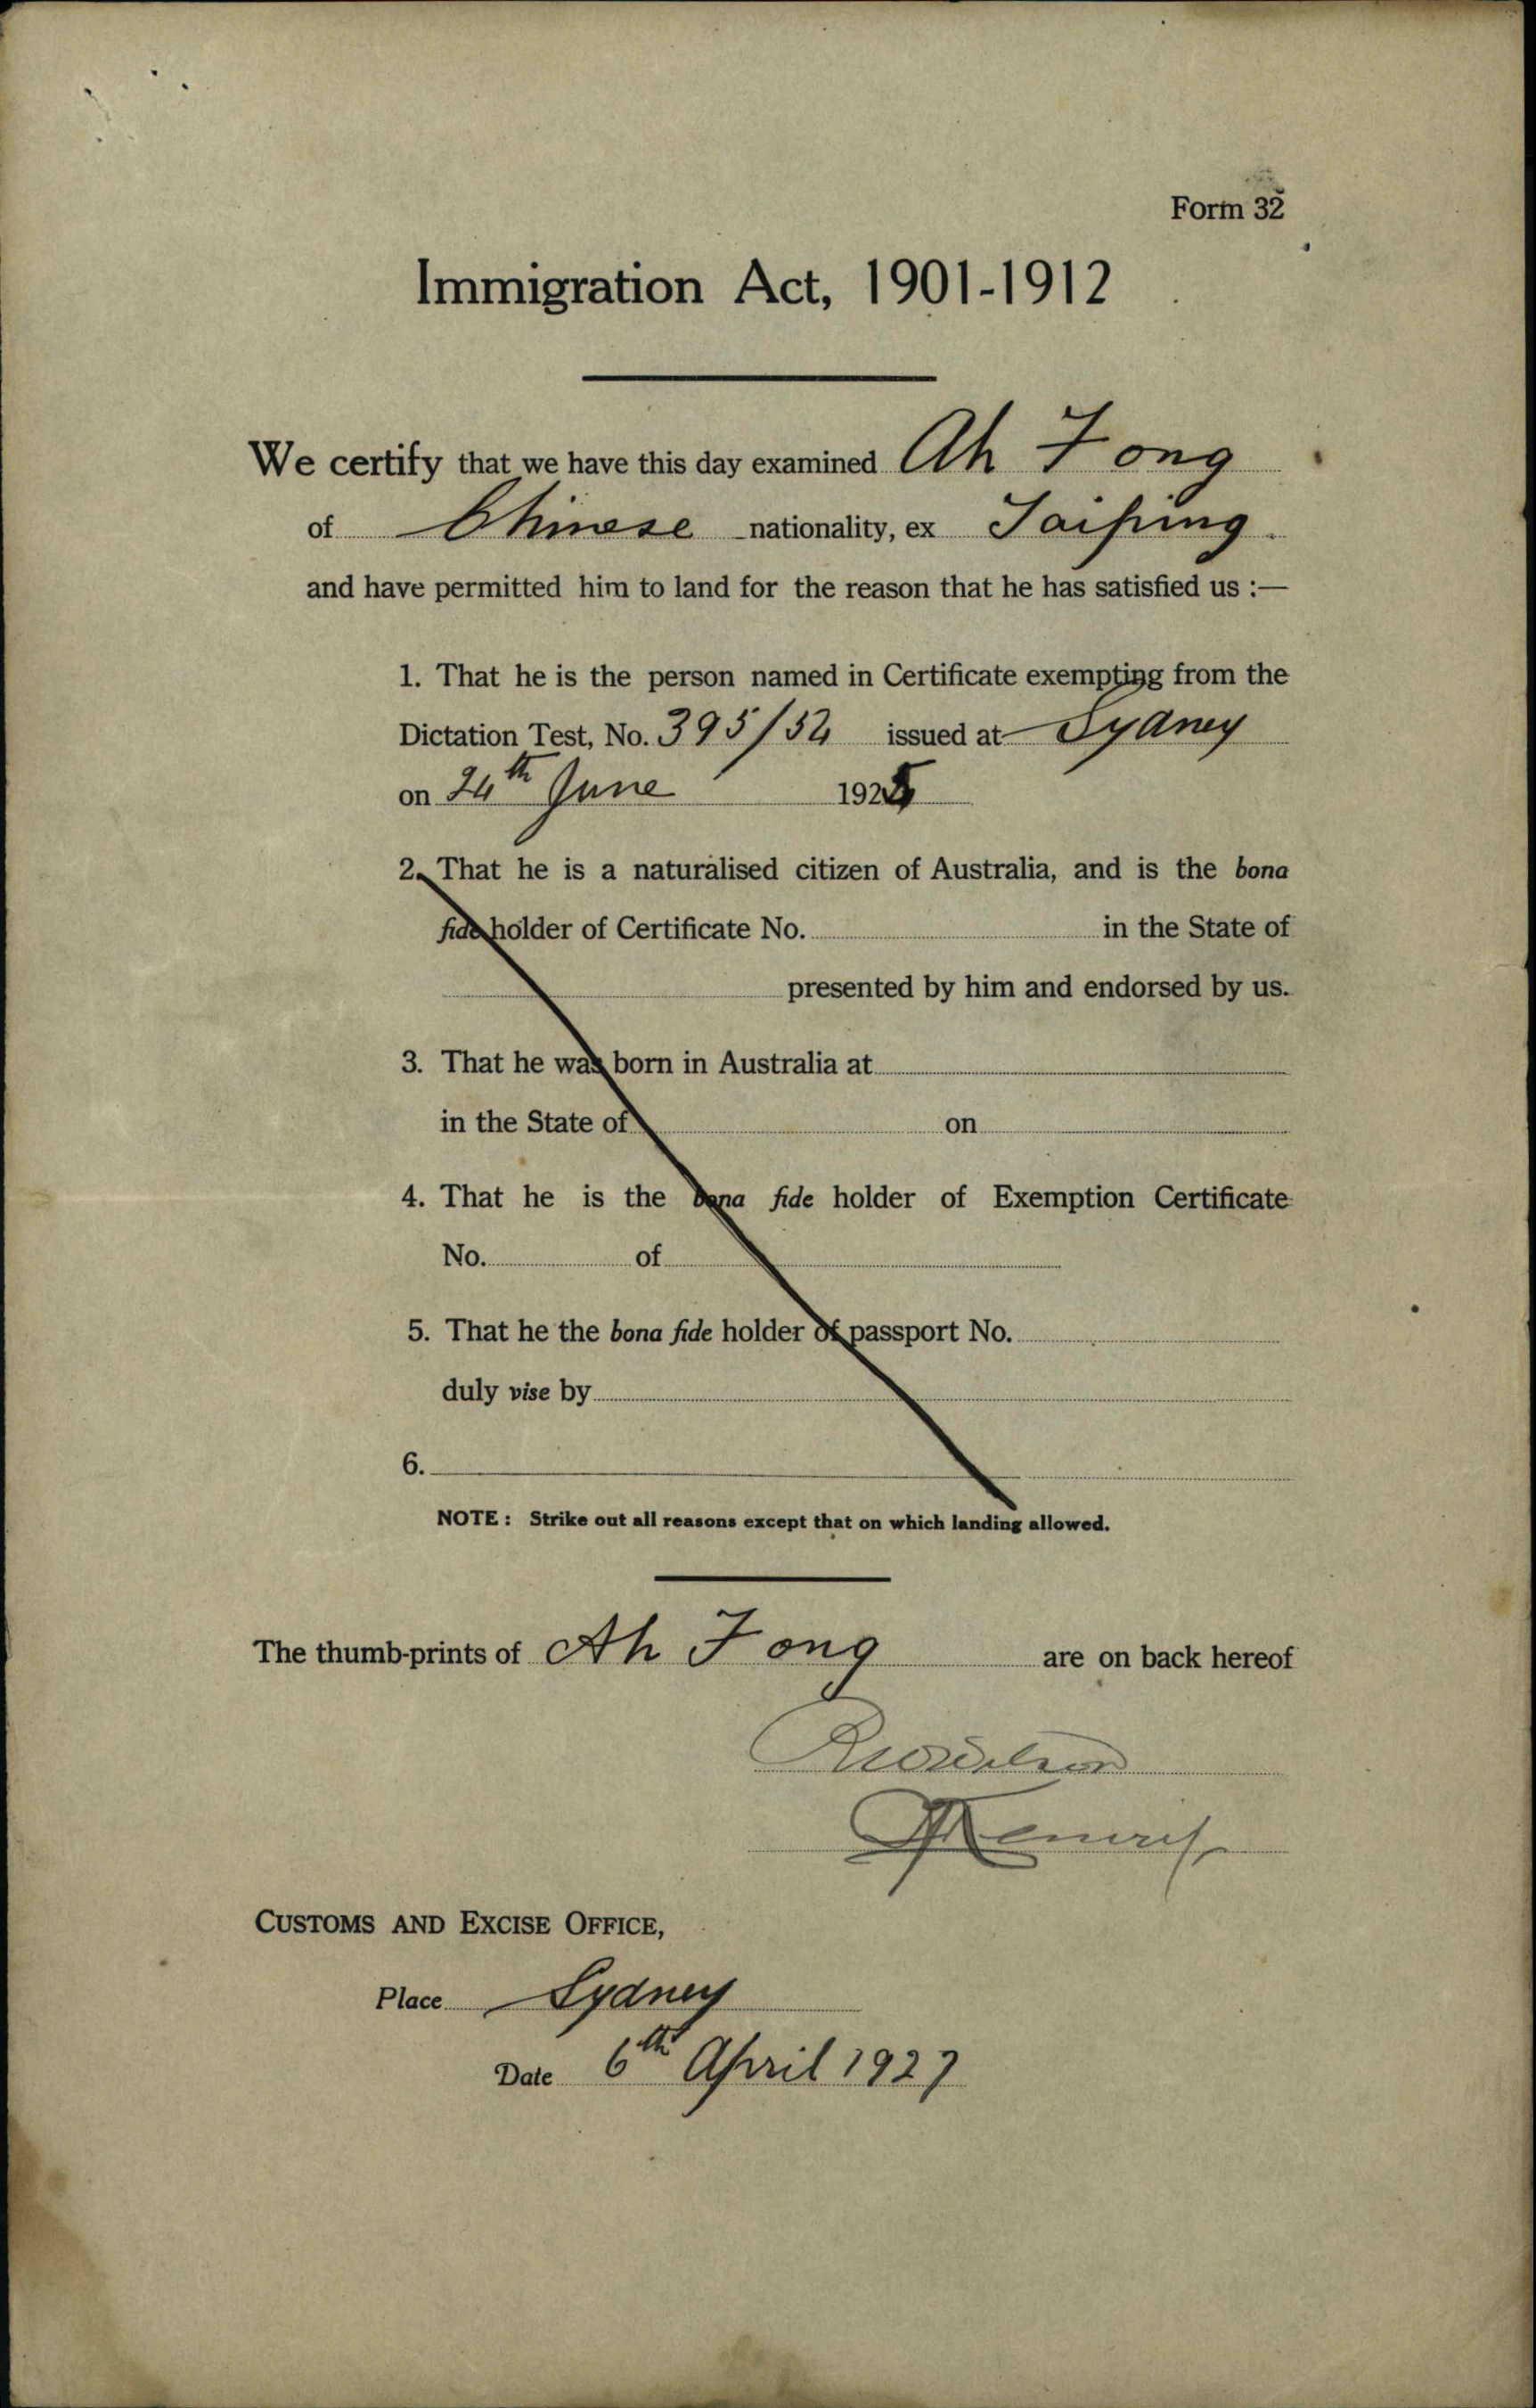 Form 32
Immigration Act, 1901-1912
We certify that we have this day examined Ah Fong
of Chinese nationality, ex Taiping
and have permitted him to land for the reason that he has satisfied us :—
1. That he is the person named in Certificate exempting from the
Dictation Test, No. 395/52 issued at Sydney
on 24th June 1925
2. That he is a naturalised citizen of Australia, and is the bona
fide holder of Certificate No. in the State of
presented by him and endorsed by us.
3. That he was born in Australia at
in the State of on
4. That he is the bona fide holder of Exemption Certificate
No. of
5. That he the bona fide holder of passport No.
duly vise by
6.
NOTE : Strike out all reasons except that on which landing allowed.
The thumb-prints of Ah Fong are on back hereof
CUSTOMS AND EXCISE OFFICE,
Place Sydney
Date 6th April 1927